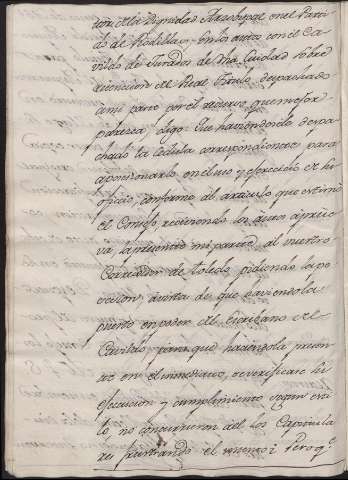 de la Dignidad Arzobispal en el Parti-
do de Rodillas; En los autos con el Ca-
vildo de Jurados de dha Ciudad sobre
retencion de Real Titulo despachado
a mi parte con el recurso que mas for
parezca, digo: Que haviendosele despa-
chado la Cedula correspondiente para
aposesionarlo en el uso y exercicio de su
oficio, conforme al articulo que estimó
el Consejo, reciviendo los autos a prue-
va, la presentó mi parte al nuestro
Corregidor de toledo pidiendo la po-
cesion, a vista de que haviendola
puesto en poder del Escribano del
Cavildo, para que haciendola presen-
te en el inmediato, se verificase su
execucion y cumplimiento segun esti-
lo no concurrieron a el los Capitula
res frustrando el mismo; Pero q.e